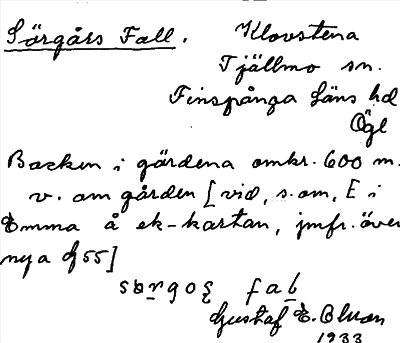 Sörgårs Fall. Klovstena
Tjällmo sn.
Finspånga läns hd
Ögl
Backen i gärdena omkr. 600 m.
v. om gården [vid, s. om, E i
Emma å ek-kartan, jmfr. över
nya G55]
Gustaf E. Bluon
1933